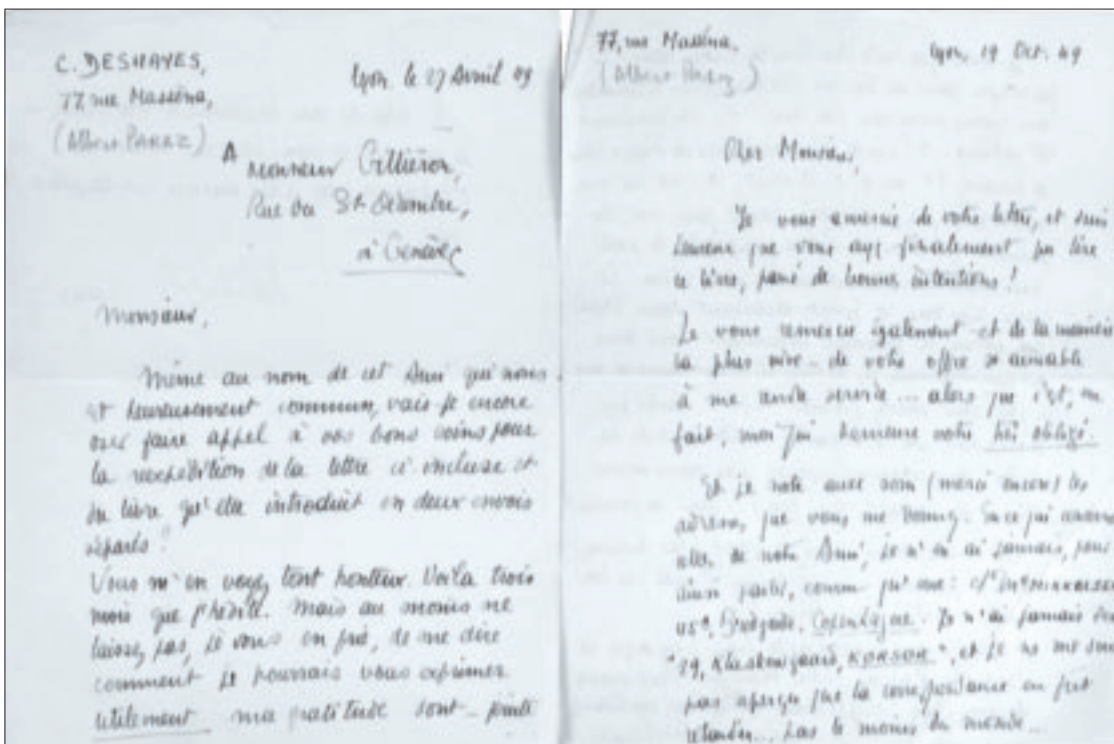 C. DESHAYES,
77 rue Masséna,
(Albert PARAZ)
Lyon le 27 Avril 49
A
Monsieur Gilliéron,
Rue du St
à Genève
Monsieur,
Même au nom de cet Ami qui nous
est heureusement commun, vais-je encore
faire appel à vos bons soins pour
la réexpédition de la lettre ci incluse et
du livre qu'elle introduit en deux envois
séparés ?
Vous m'en voyez tout honteux. Voilà trois
mois que j'hésite. Mais au moins ne
laissez pas, je vous en prie, de me dire
comment je pourrais vous exprimer
utilement ma gratitude
77, rue Masséna,
(Albert Paraz)
Lyon, 19 Oct. 49
Cher Monsieur,
Je vous remercie de votre lettre, et suis
que vous ayez finalement pu lire
ce livre, pavé de bonnes intentions !
Je vous remercie également et de la manière
la plus vive - de votre offre si aimable
à me rendre service ... alors que c'est, en
fait, moi qui demeure votre très obligé.
Et je note avec soin (merci encore) les
adresses, que vous me donnez. En ce qui
de notre Ami, je n'en ai jamais, pour
ainsi parler, connu qu'une : c/° Me MIKKELSEN
45a, Bredgade, Copenhague. Je n'ai jamais
KORSOR", et je ne me suis
pas aperçu que la correspondance en fut
retardée... pas le moins du monde...